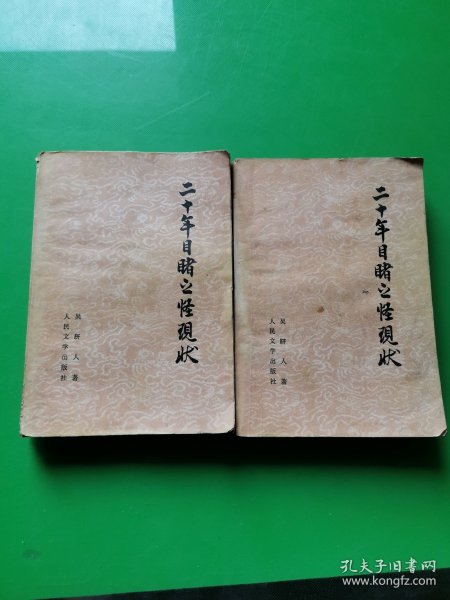 二十年目睹之怪现状
吴趼人 著
人民文学出版社
二十年目睹之怪现状
吴趼人 著
人民文学出版社
孔夫子旧书网
www.kongfz.com